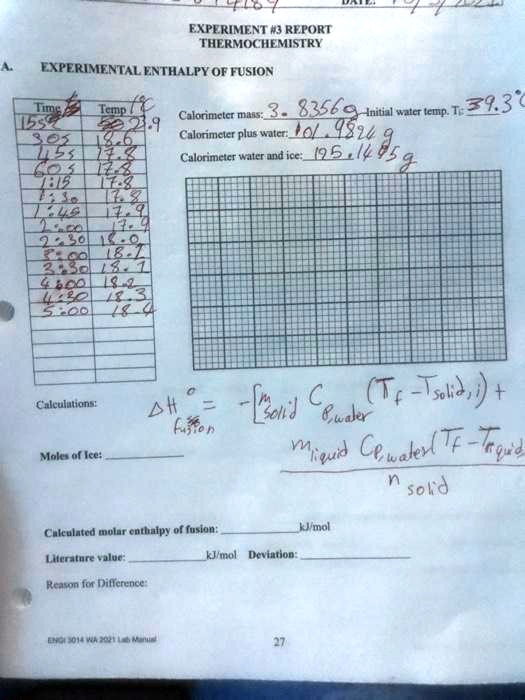 DATE:
EXPERIMENT #3 REPORT
THERMOCHEMISTRY
A. EXPERIMENTAL ENTHALPY OF FUSION
Time Temp /°C
15s 23.9
30s 18.0
45s 17.8
60s 17.8
1:15 17.8
1:30 17.8
1:45 17.9
2:00 17.9
2:30 18.0
3:00 18.1
3:30 18.1
4:00 18.2
4:30 18.3
5:00 18.4
Calorimeter mass: 3.8356g Initial water temp. Ti: 39.3°C
Calorimeter plus water: 101.9824 g
Calorimeter water and ice: 195.1495g
Calculations: ΔH°fusion = -[msolid Cp,water (Tf - Tsolid,i) +
mliquid Cp,water (Tf - Tliquid
nsolid
Moles of Ice:
Calculated molar enthalpy of fusion: kJ/mol
Literature value: kJ/mol Deviation:
Reason for Difference:
ENGI 3014 WA 2021 Lab Manual 27